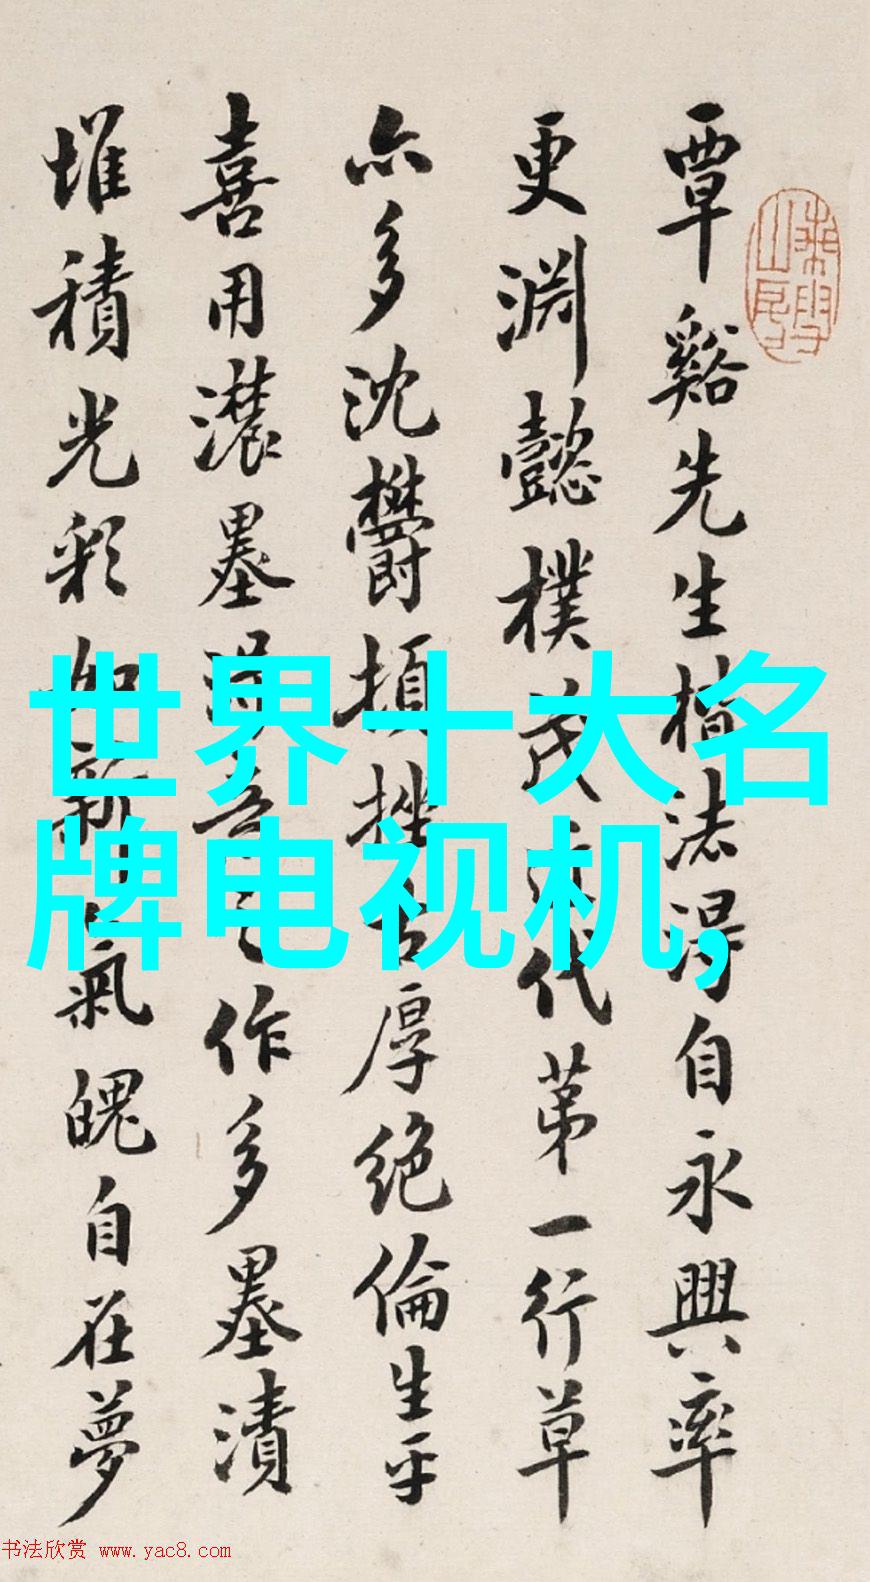 覃谿先生楷法得自永興率
更淵懿樸茂近代第一行草
亦多沈欝頓挫古厚絕倫生平
喜用濃墨得意之作多墨漬
堆積光彩如新氣魄自在夢
世界十大名
牌电视机,
书法欣赏 www.yac8.com